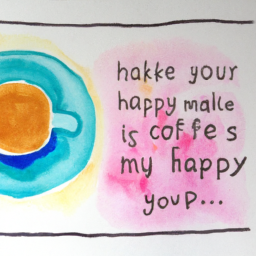 hakke your
happy malle
is coffe s
my happy
youp...